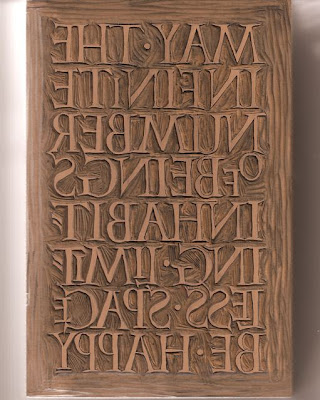 MAY·THE
INFINITE
NUMBER
OF BEINGS
INHABIT
ING·LIMIT
LESS·SPACE
BE·HAPPY